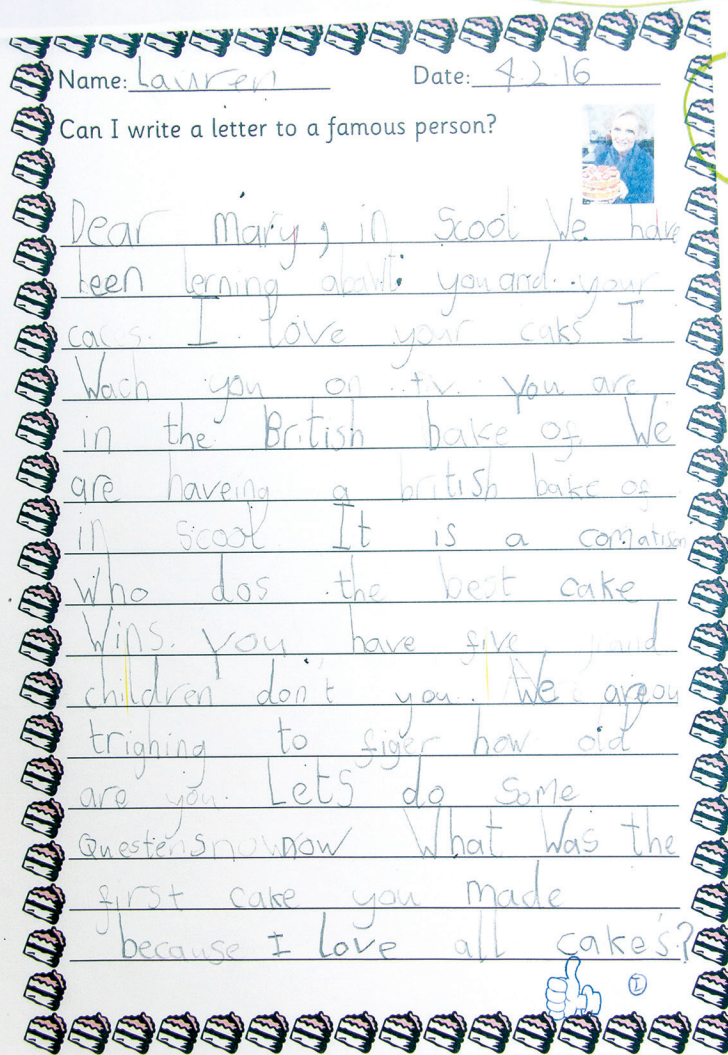 Name: Lauren Date: 4.2.16
Can I write a letter to a famous person?
Dear mary, in scool We have
been lerning about you and your
cacus. I love your caks I
Wach you on tv. You are
in the British bake of We
are haveing a british bake of
in scool It is a comatison
who dos the best cake
Wins. you have five grand
children don't you. We are
trighing to figer how old
are you. Lets do some
Questens now What Was the
first cake you made
because I love all cake's?
I